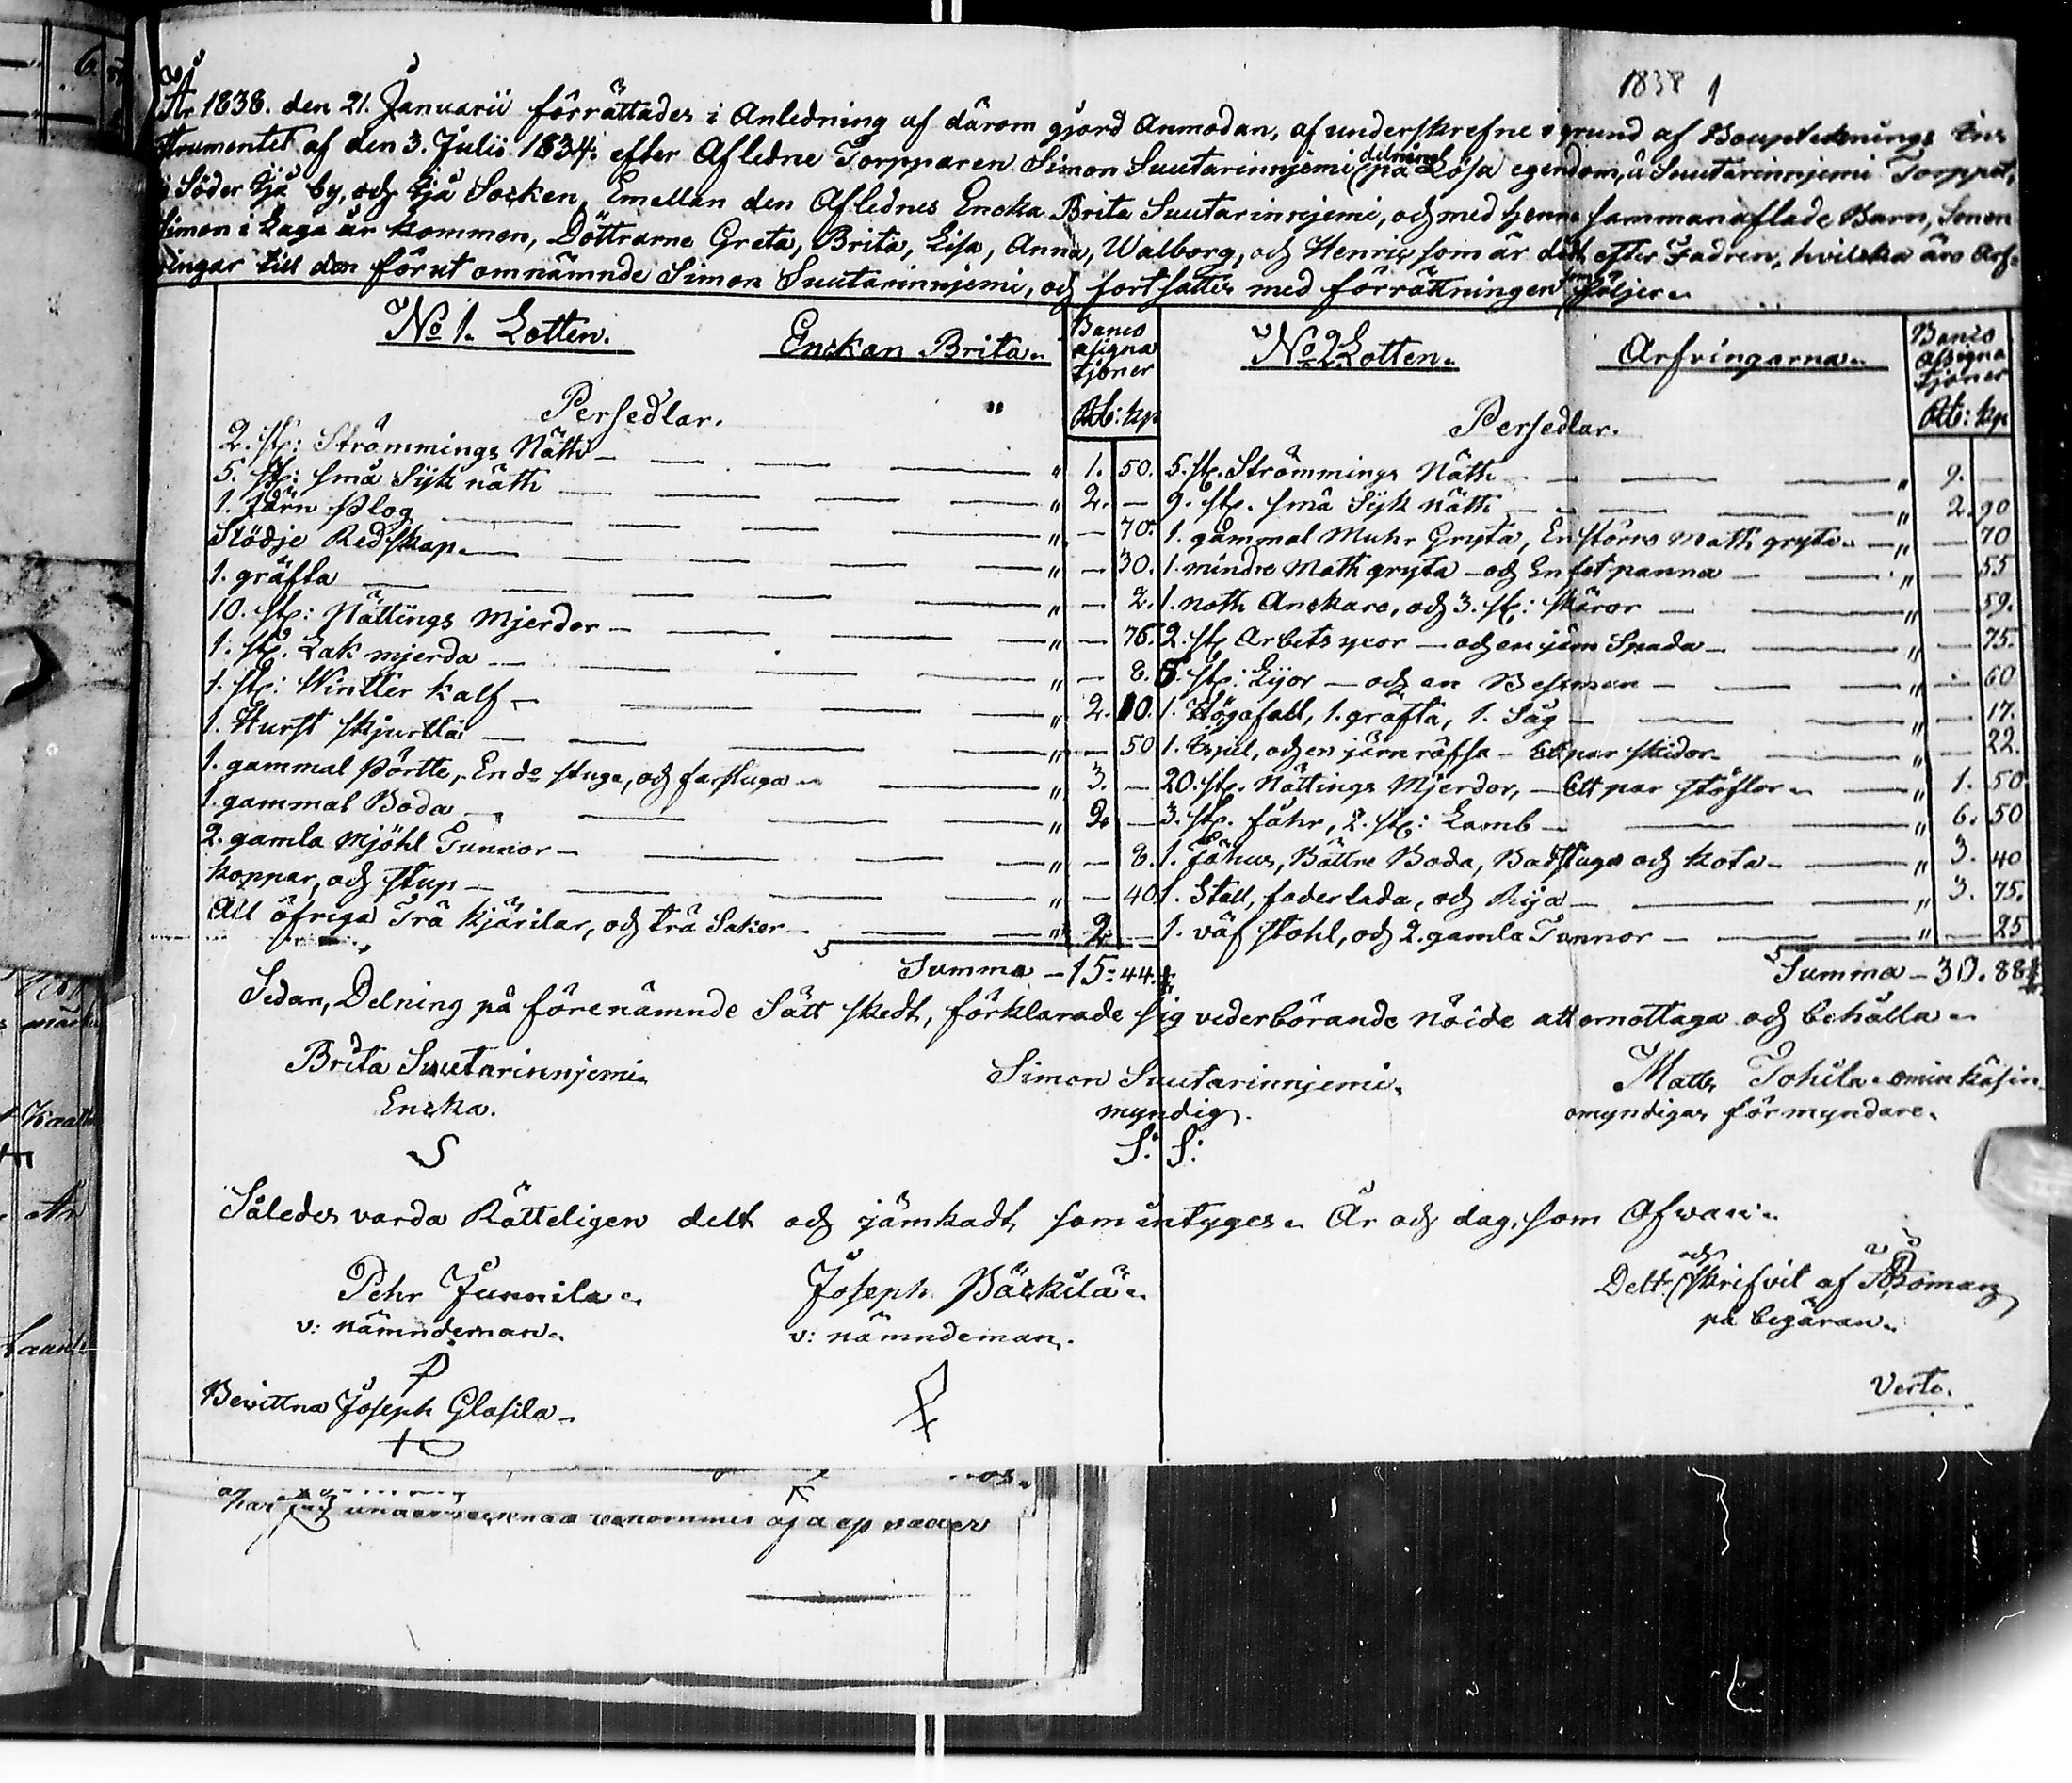 1838 1
År 1838. den 21. Januarii förrättades i Anledning af därom gjord Anmodan, af underskrefne i grund af Boupteknings Ins
trumentet af den 3. Julii 1834. efter Aflidne Torpparen Simon Suutarinnjemi delning på Lösa egendom, å Suutarinnjemi Torppet,
i Söder Ijå by, och Ijå Socken, Emellan den Aflednes Encka Brita Suutarinnjemi, och med henne sammanaflade Barn, Sonen
Simon i Laga år kommen, Döttrarne Greta, Brita, Lisa, Anna, Walborg, och Henric som är död efter Fadren, hvilcka äro Arf-
vingar till den förut omnämnde Simon Suutarinnjemi, och fortsattes med förrättningen som följer.
No 1. Lotten. Enckan Brita.
Banco asigna tjoner
Rub: kp
Persedlar. "
2. st: Strömmings Nätt " 1. 50.
5. st: små Syk näth " 2. —
1. Järn Plog " — 70.
Slödje Redskap. " — 30.
1. gräfta " — 2.
10. st: Nättings Mjerdor " — 76.
1. st. Lak mjerda " — 8.
1. st: Wintter kalf " 2. 10.
1. Hurst skjurtta " — 50
1. gammal Pörtte, En do stuga, och farstuga " 3. —
1. gammal Boda " 2. —
2. gamla Mjöhl Tunnor " — 8.
Koppar, och stup " — 40
All öfriga Trä kjärilar, och trä Saker " 2. —
Summa — 15: 44.
No 2 Lotten. Arfvingarna.
Banco Assigna tjoner
Rub: kp
Persedlar.
5. st. Strömmings Näth " 9. —
9. st. små Syk näth " 2. 90
1. gammal Muhr Gryta, En större Math gryta " — 70
1. mindre Math gryta — och En fet panna " — 55
1. noth Anckare, och 3. st: skäror " — 59.
2. st Arbets yxor — och en järn Spada " — 75.
5. st: Lijor — och en Besman " — 60
1. Högafall, 1. gräfta, 1. Såg " — 17.
1. Bjul, och en järn räfsa — Ett par skidor " — 22.
20. st. Nättings Mjerdor, — Ett par stöflor " 1. 50
3. st. fåhr, 2. st: Lamb " 6. 50
1. Fähus, Bättre Boda, Badstuga och Kota " 3. 40
1. Stall, foderlada, och Rija " 3. 75.
1. väf stohl, och 2. gamla Tunnor " — 25
Summa — 30. 88
Sedan, Delning på förenämnde Sätt skedt, förklarade sig vederbörande nöide att emottaga och behålla.
Brita Suutarinnjemi. Simon Suutarinnjemi. Matts Tohila omin käsin
Encka. myndig. omyndigas förmyndare.
S S: S:
Således varda Rätteligen delt och jämkadt, som intyges. År och dag, som Ofwan.
Pehr Junnila. Joseph Päckilä. Delt och skrifvit af
v: nämndeman. v: nämndeman. på begäran.
Bevittna Joseph Glasila
Verte.